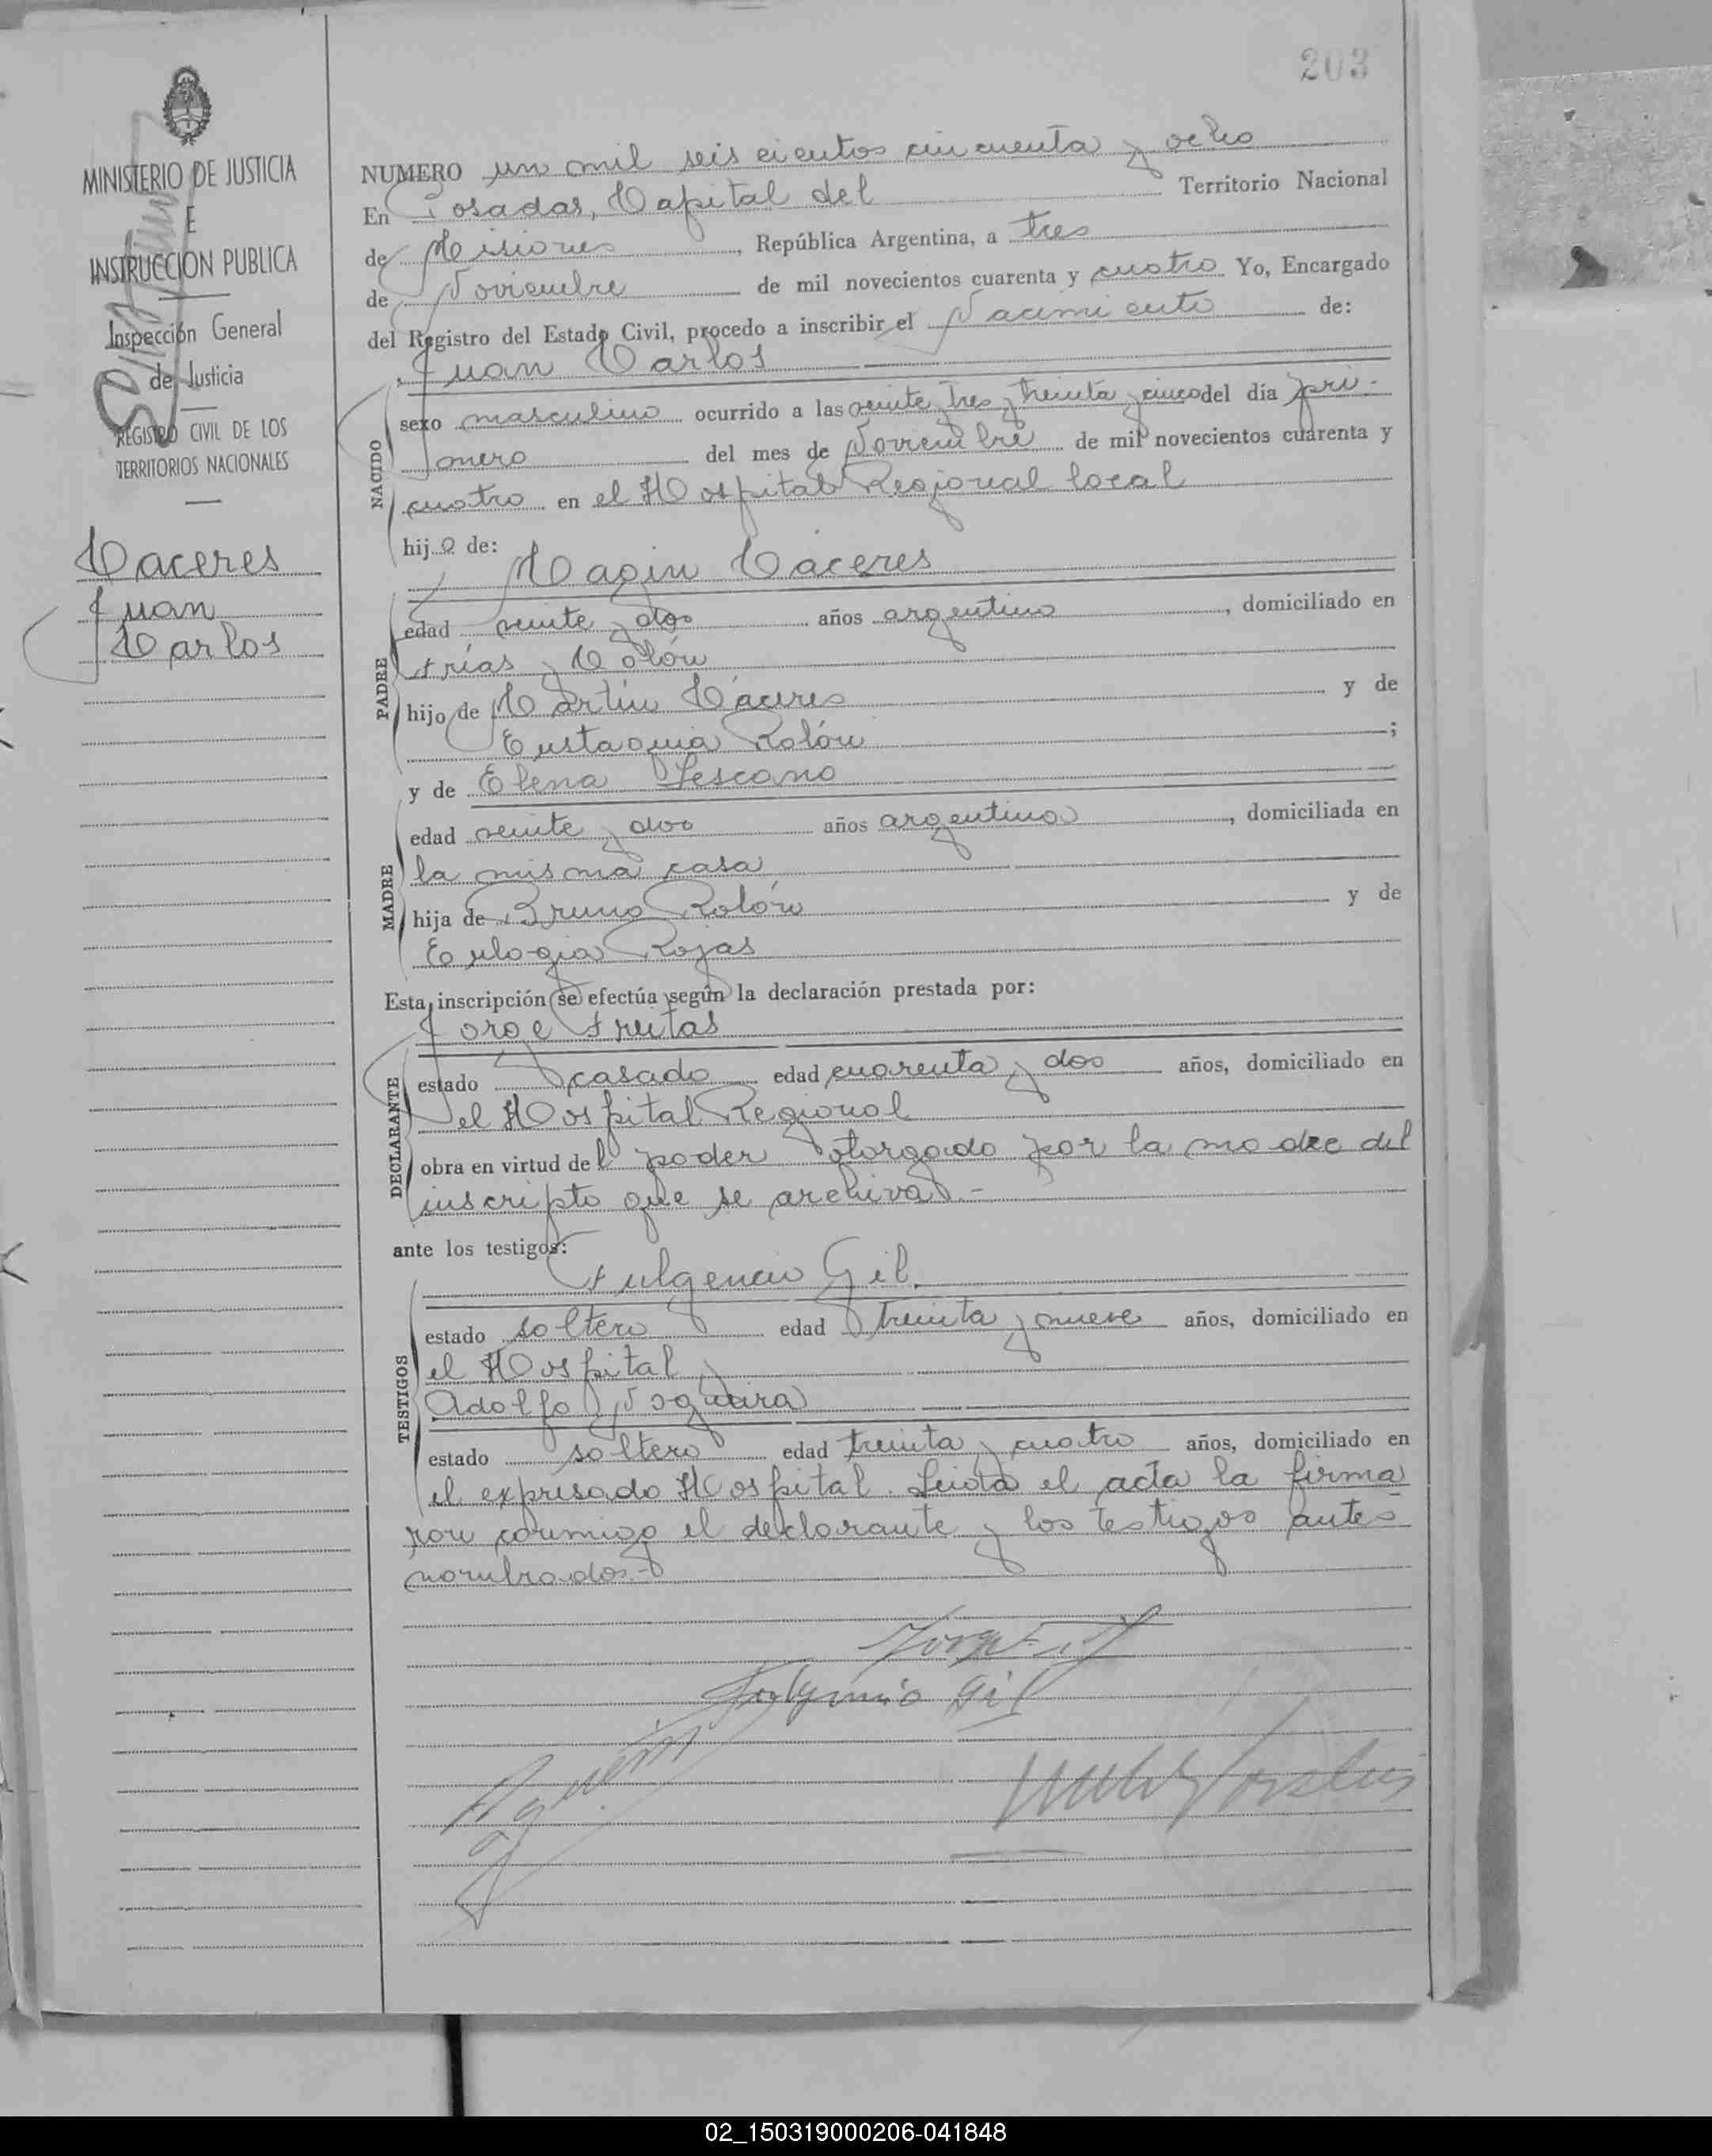 203
MINISTERIO DE JUSTICIA
E
INSTRUCCION PUBLICA
Inspección General
de Justicia
REGISTRO CIVIL DE LOS
TERRITORIOS NACIONALES
Caceres
Juan
Carlos
NUMERO un mil seis cientos cincuenta y ocho
En Posadas, Capital del Territorio Nacional
de Misiones, República Argentina, a tres
de Noviembre de mil novecientos cuarenta y cuatro Yo, Encargado
del Registro del Estado Civil, procedo a inscribir el Nacimiento de:
Juan Carlos
NACIDO
sexo masculino ocurrido a las veinte tres y treinta y cinco del día pri-
mero del mes de Noviembre de mil novecientos cuarenta y
cuatro en el Hospital Regional local
hijo de:
Magin Cáceres
PADRE
edad veinte y dos años argentino, domiciliado en
Frías y Colón
hijo de Martín Cáceres y de
Eustaquia Rolón;
y de Elena Lescano
MADRE
edad veinte y dos años argentina, domiciliada en
la misma casa
hija de Bruno Rolón y de
Eulogia Rojas
Esta inscripción se efectúa según la declaración prestada por:
Jorge Freitas
DECLARANTE
estado casado edad cuarenta y dos años, domiciliado en
el Hospital Regional
obra en virtud del poder otorgado por la madre del
inscripto que se archiva.-
ante los testigos:
Fulgencio Gil
TESTIGOS
estado soltero edad treinta y nueve años, domiciliado en
el Hospital y
Adolfo Nogueira
estado soltero edad treinta y cuatro años, domiciliado en
el expresado Hospital. Leida el acta la firma
ron conmigo el declarante y los testigos antes
nombrados.-
Fulgencio Gil
02_150319000206-041848